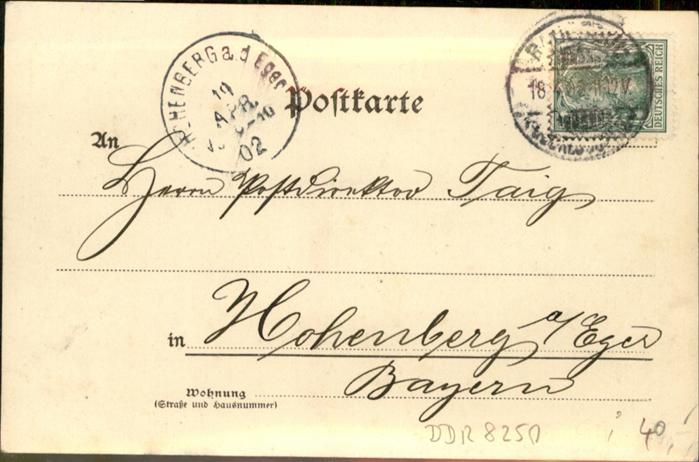 HOHENBERG a. d. Eger
19
APR.
02
DEUTSCHES REICH
Postkarte
An
Herrn Postdirektor Taig
in Hohenberg a/Eger
Bayern
Wohnung
(Straße und Hausnummer)
DDR 8250
40,